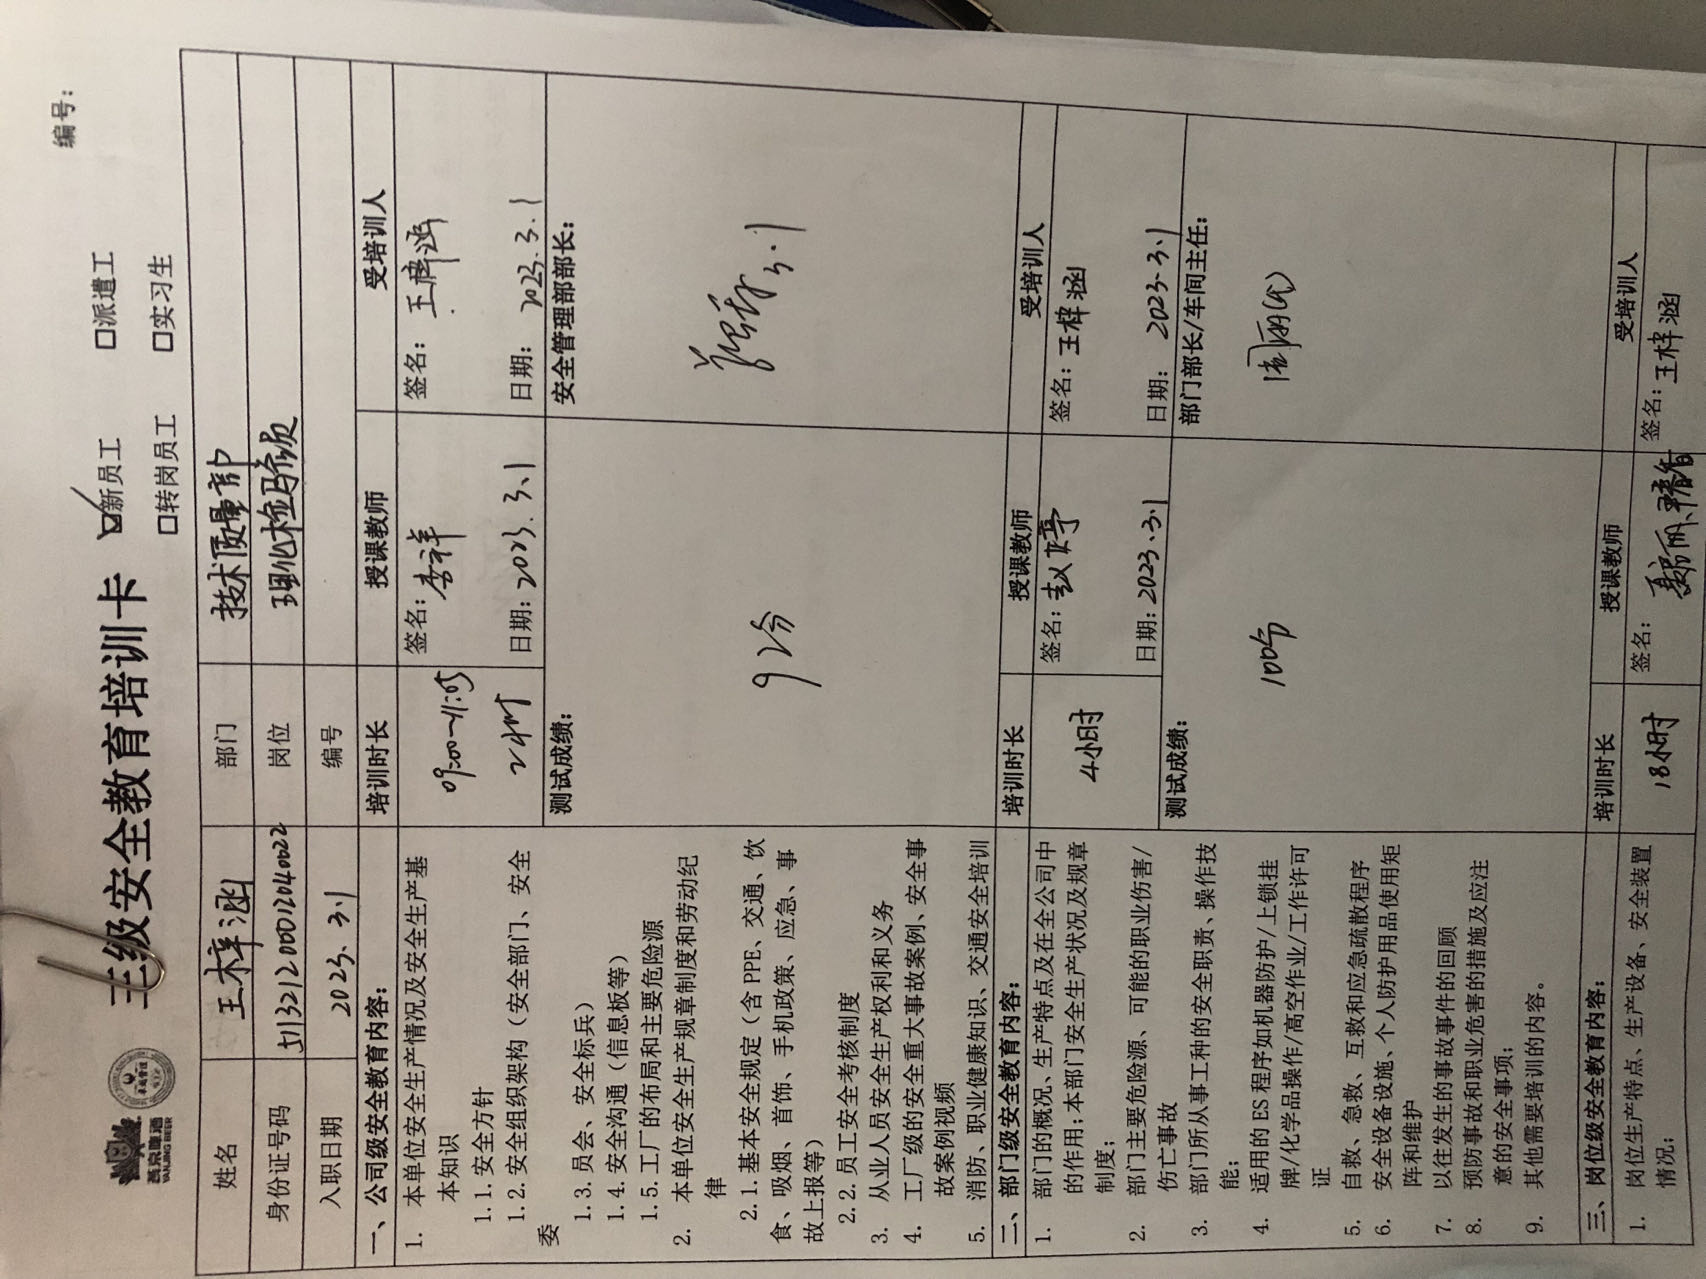 编号：
燕京啤酒
YANJING BEER
三级安全教育培训卡
☑新员工 □派遣工
□转岗员工 □实习生
姓名 王梓涵 部门 技术质量部
身份证号码 岗位 理化检验员
入职日期 2023.3.1 编号
一、公司级安全教育内容： 培训时长 授课教师 受培训人
1. 本单位安全生产情况及安全生产基
本知识
1.1.安全方针
1.2.安全组织架构（安全部门、安全
委
1.3.员会、安全标兵）
1.4.安全沟通（信息板等）
1.5.工厂的布局和主要危险源
2. 本单位安全生产规章制度和劳动纪
律
2.1.基本安全规定（含PPE、交通、饮
食、吸烟、首饰、手机政策、应急、事
故上报等）
2.2.员工安全考核制度
3. 从业人员安全生产权利和义务
4. 工厂级的安全重大事故案例、安全事
故案例视频
5. 消防、职业健康知识、交通安全培训
09:00~11:05
2小时
签名：李祥
日期：2023.3.1
签名：王梓涵
日期：2023.3.1
测试成绩：
92分
安全管理部部长：
3.1
二、部门级安全教育内容： 培训时长 授课教师 受培训人
1. 部门的概况、生产特点及在全公司中
的作用；本部门安全生产状况及规章
制度；
2. 部门主要危险源、可能的职业伤害/
伤亡事故
3. 部门所从事工种的安全职责、操作技
能；
4. 适用的ES程序如机器防护/上锁挂
牌/化学品操作/高空作业/工作许可
证
5. 自救、急救、互救和应急疏散程序
6. 安全设备设施、个人防护用品使用矩
阵和维护
7. 以往发生的事故事件的回顾
8. 预防事故和职业危害的措施及应注
意的安全事项；
9. 其他需要培训的内容。
4小时
签名：赵婷
日期：2023.3.1
签名：王梓涵
日期：2023.3.1
测试成绩：
100分
部门部长/车间主任：
三、岗位级安全教育内容： 培训时长 授课教师 受培训人
1. 岗位生产特点、生产设备、安全装置
情况；
18小时
签名：
签名：王梓涵